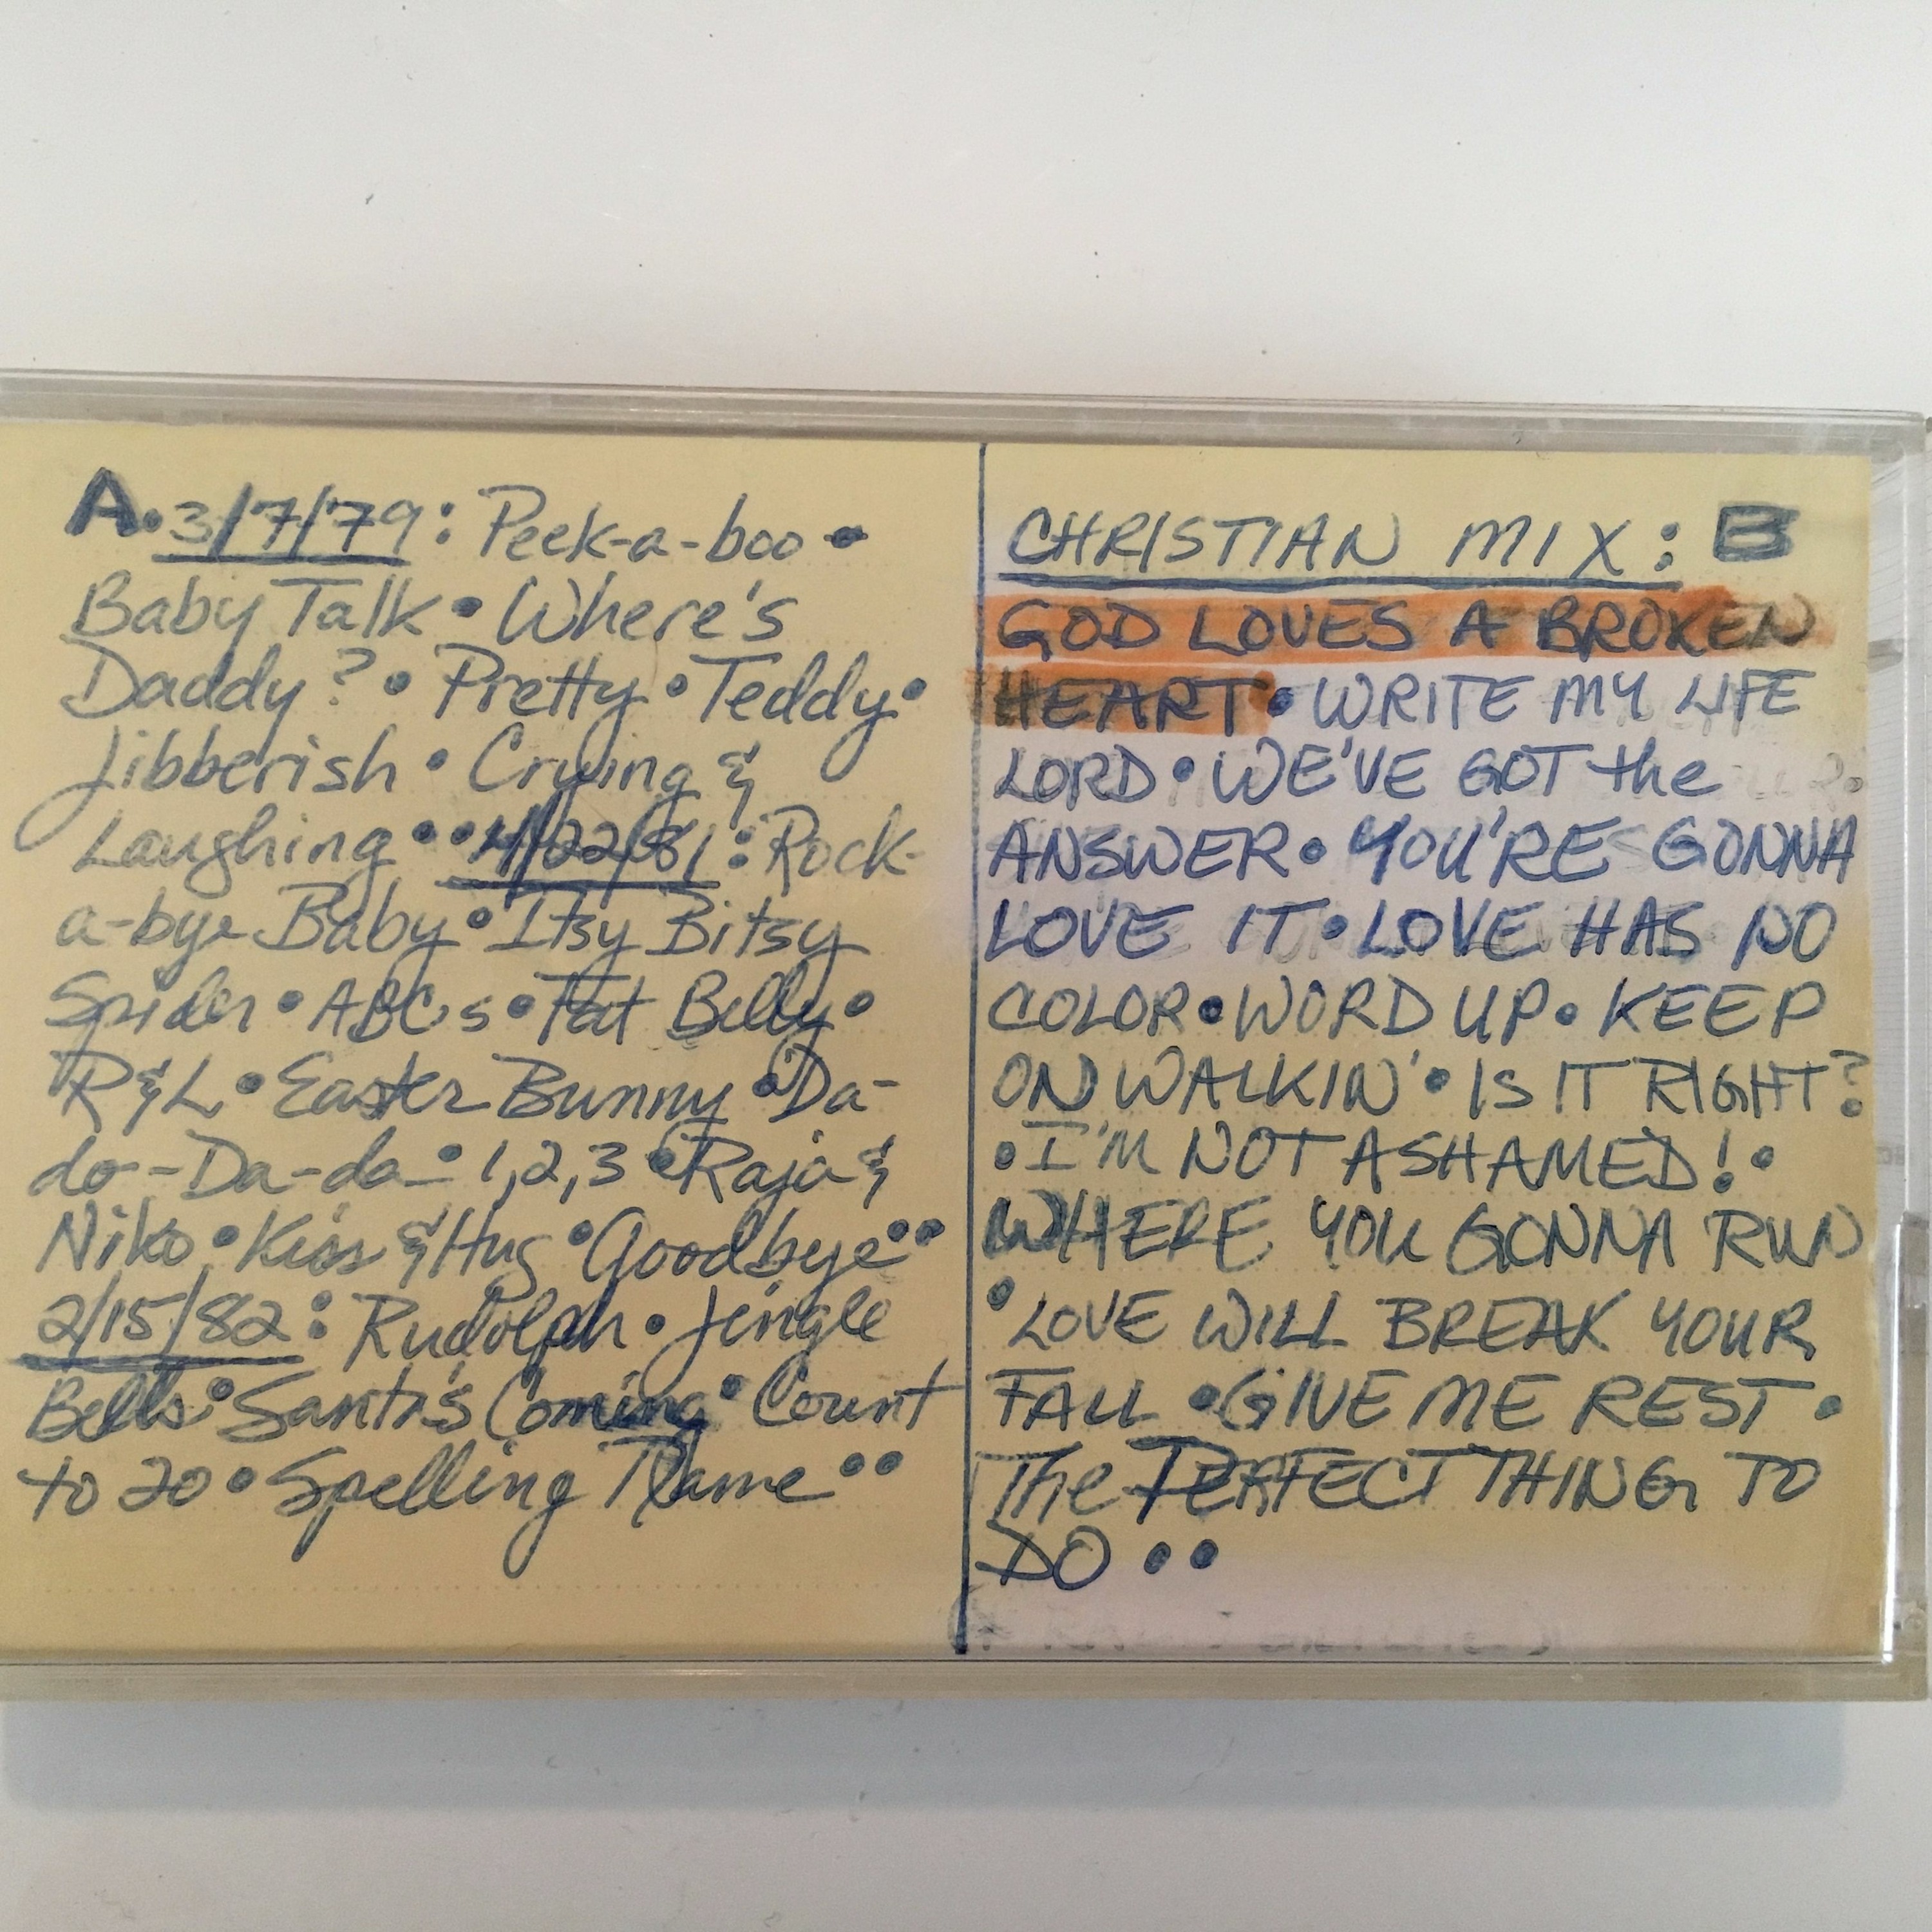 A. 3/7/79: Peek-a-boo •
Baby Talk • Where's
Daddy? • Pretty • Teddy •
Jibberish • Crying &
Laughing •• 4/22/81: Rock-
a-bye Baby • Itsy Bitsy
Spider • ABCs • Fat Belly •
R&L • Easter Bunny • Da-
do--Da-da • 1,2,3 • Raja &
Niko • Kiss & Hug • Goodbye ••
2/15/82: Rudolph • Jingle
Bells • Santa's Coming • Count
to 20 • Spelling Name ••
CHRISTIAN MIX: B
GOD LOVES A BROKEN
HEART • WRITE MY LIFE
LORD • WE'VE GOT the
ANSWER • YOU'RE GONNA
LOVE IT • LOVE HAS NO
COLOR • WORD UP • KEEP
ON WALKIN' • IS IT RIGHT?
• I'M NOT ASHAMED! •
WHERE YOU GONNA RUN
• LOVE WILL BREAK YOUR
FALL • GIVE ME REST •
The PERFECT THING TO
DO ••